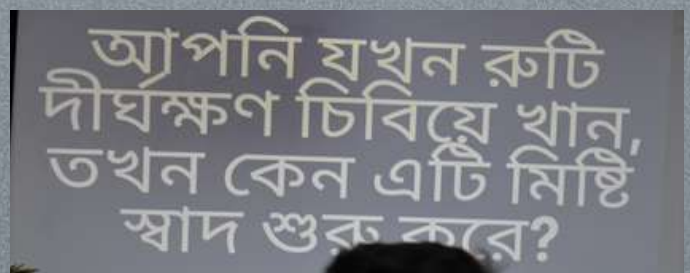 আপনি যখন রুটি
দীর্ঘক্ষণ চিবিয়ে খান,
তখন কেন এটি মিষ্টি
স্বাদ শুরু করে?